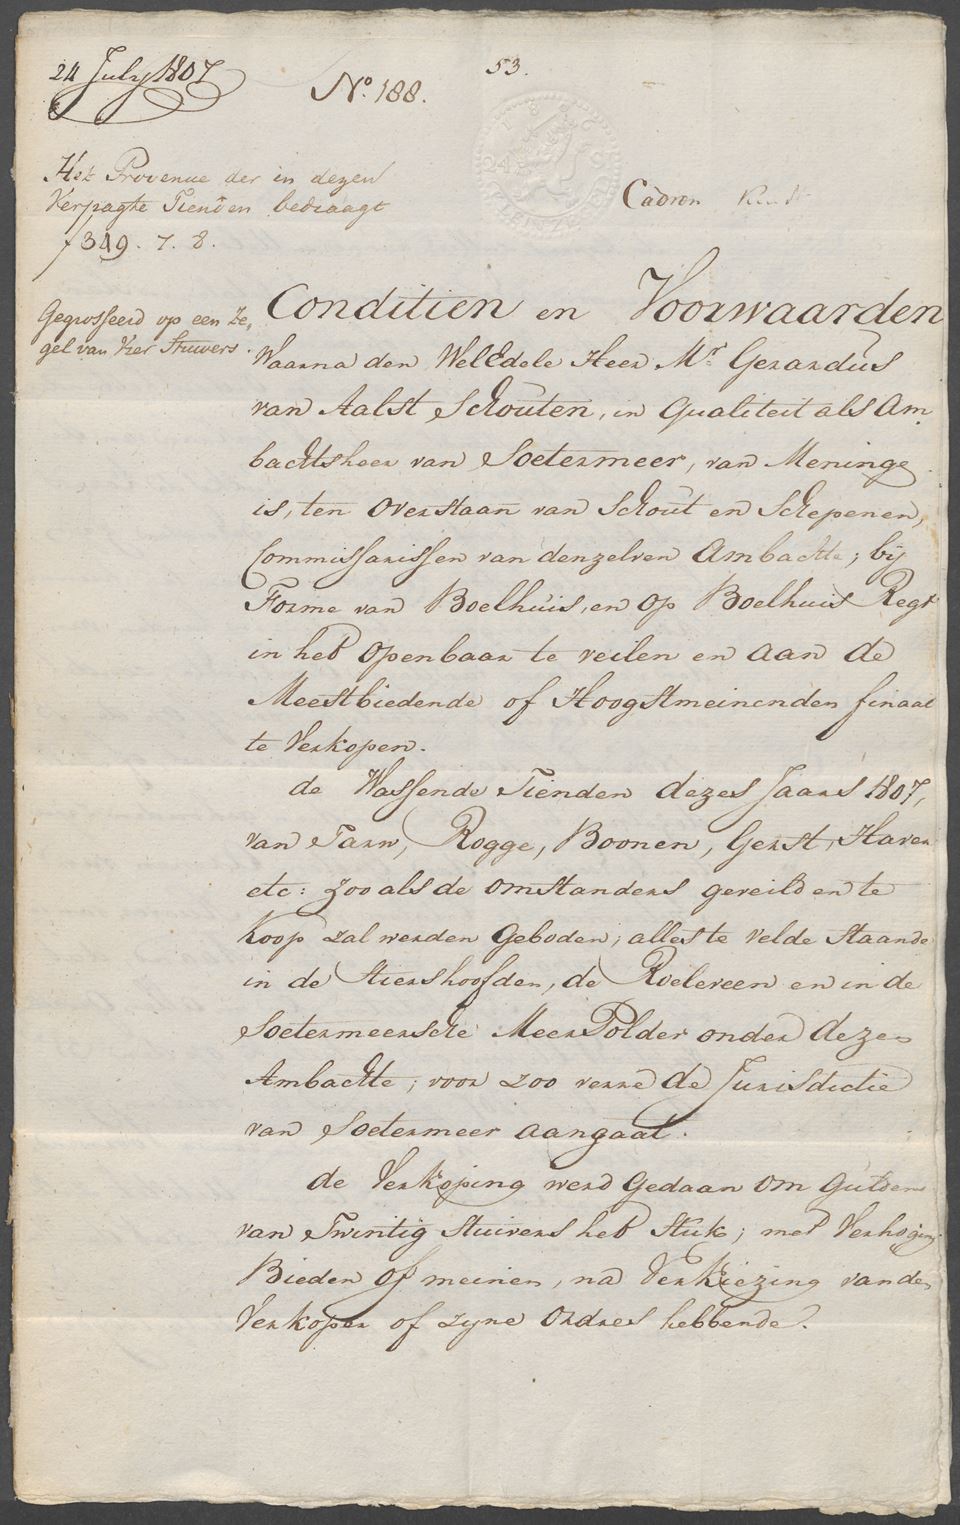 53.
24 July 1807
No. 188.
Het Provenue der in dezen
Verpagte Tienden bedraagt
f 349. 7. 8.
Cadron
Gegrosseerd op een Ze,
gel van Vier Stuivers.
Conditien en Voorwaarden
Waarna den WelEdele Heer Mr. Gerardus
van Aalst Schouten, in qualiteit als Am
bachtsheer van Soetermeer, van Meninge
is, ten overstaan van Schout en Schepenen,
Commissarissen van denzelven Ambachte; bij
Forme van Boelhuis, en op Boelhuis Regt
in het openbaar te veilen en aan de
Meestbiedende of Hoogstmeinenden finaal
te Verkopen.
de Wassende Tienden dezes Jaars 1807,
van Tarw, Rogge, Boonen, Gerst, Haver
etc: zoo als de omstanders geveild en te
Koop zal werden Geboden, alles te velde Staande
in de Stiershoofden, de Roeleveen en in de
Soetermeersche MeerPolder onder deze
Ambachte; voor zoo verre de Jurisdictie
van Soetermeer aangaat.
de Verkoping werd Gedaan om Guldens
van Twintig Stuivers het Stuk; met Verhoging
Bieden of meinen, na Verkiezing van de
Verkoper of zyne Ordres hebbende.